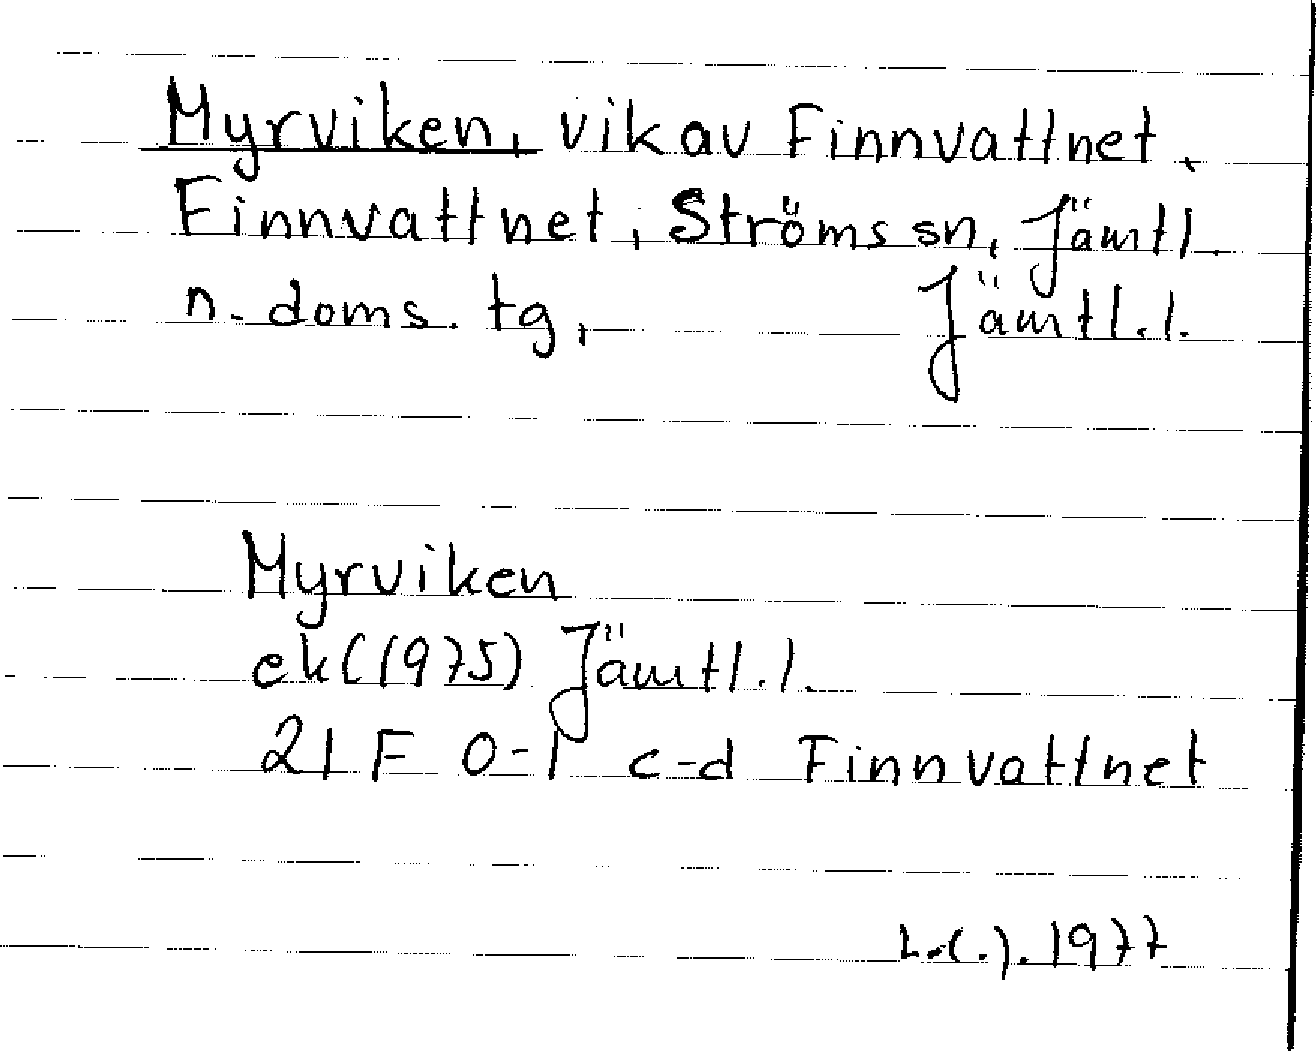 Myrviken, vik av Finnvattnet,
Finnvattnet, Ströms sn, Jämtl.
n. doms. tg, Jämtl.l.
Myrviken
ek (1975) Jämtl.l.
21 F 0-1 c-d Finnvattnet
1977